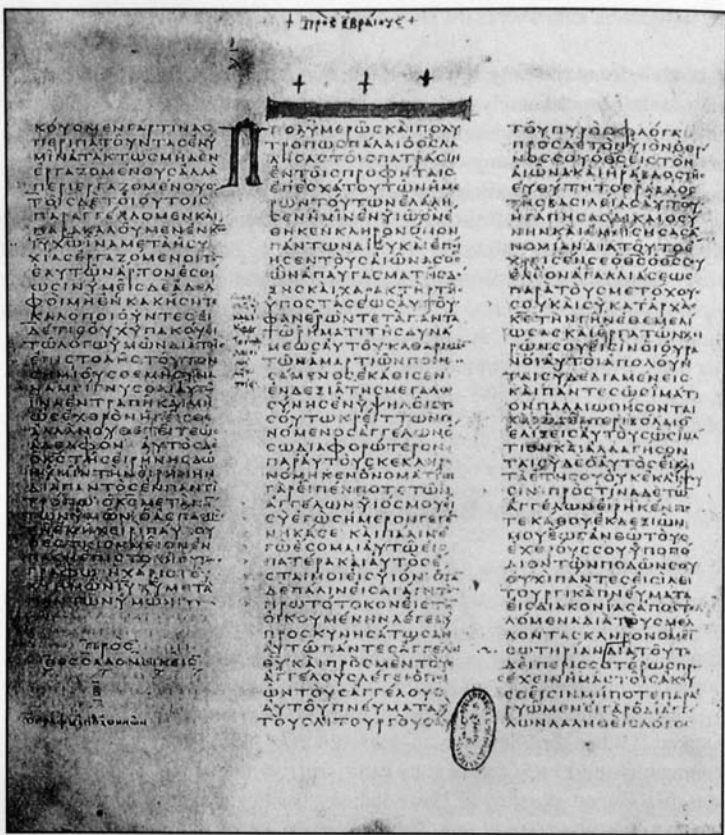 ΠΡΟΣ ΕΒΡΑΙΟΥΣ
ΚΟΥΟΜΕΝΓΑΡΤΙΝΑΣ
ΠΕΡΙΠΑΤΟΥΝΤΑΣΕΝΥ
ΜΙΝΑΤΑΚΤΩΣΜΗΔΕΝ
ΕΡΓΑΖΟΜΕΝΟΥΣΑΛΛΑ
ΠΕΡΙΕΡΓΑΖΟΜΕΝΟΥΣ
ΤΟΙΣΔΕΤΟΙΟΥΤΟΙΣ
ΠΑΡΑΓΓΕΛΛΟΜΕΝΚΑΙ
ΠΑΡΑΚΑΛΟΥΜΕΝΕΝΚ
ΙΥΧΩΙΝΑΜΕΤΑΗΣΥ
ΧΙΑΣΕΡΓΑΖΟΜΕΝΟΙΤ
ΕΑΥΤΩΝΑΡΤΟΝΕΣΘΙ
ΩΣΙΝΥΜΕΙΣΔΕΑΔΕΛ
ΦΟΙΜΗΕΝΚΑΚΗΣΗΤ
ΚΑΛΟΠΟΙΟΥΝΤΕΣΕΙ
ΔΕΤΙΣΟΥΧΥΠΑΚΟΥΕΙ
ΤΩΛΟΓΩΥΜΩΝΔΙΑΤΗ
ΕΠΙΣΤΟΛΗΣΤΟΥΤΟΝ
ΣΗΜΙΟΥΣΘΕΜΗΣΥΝΑ
ΝΑΜΕΙΓΝΥΣΘΑΙΑΥΤΩ
ΙΝΑΕΝΤΡΑΠΗΚΑΙΜΗ
ΩΣΕΧΘΡΟΝΗΓΕΙΣΘΕ
ΑΛΛΑΝΟΥΘΕΤΕΙΤΕΩΣ
ΑΔΕΛΦΟΝ ΑΥΤΟΣΔΕ
ΟΚΣΤΗΣΕΙΡΗΝΗΣΔΩΗ
ΥΜΙΝΤΗΝΕΙΡΗΝΗΝ
ΔΙΑΠΑΝΤΟΣΕΝΠΑΝΤΙ
ΤΡΟΠΩΟΚΣΜΕΤΑΠΑ
ΤΩΝΥΜΩΝΟΑΣΠΑΣ
ΠΡΟΣ
ΘΕΣΣΑΛΟΝΙΚΕΙΣ
Β
ΠΟΛΥΜΕΡΩΣΚΑΙΠΟΛΥ
ΤΡΟΠΩΣΠΑΛΑΙΟΘΣΛΑ
ΛΗΣΑΣΤΟΙΣΠΑΤΡΑΣΙΝ
ΕΝΤΟΙΣΠΡΟΦΗΤΑΙΣ
ΕΠΕΣΧΑΤΟΥΤΩΝΗΜΕ
ΡΩΝΤΟΥΤΩΝΕΛΑΛΗ
ΣΕΝΗΜΙΝΕΝΥΙΩΟΝΕ
ΘΗΚΕΝΚΛΗΡΟΝΟΜΟΝ
ΠΑΝΤΩΝΔΙΟΥΚΑΙΕΠΟΙ
ΗΣΕΝΤΟΥΣΑΙΩΝΑΣΟΣ
ΩΝΑΠΑΥΓΑΣΜΑΤΗΣΔΟ
ΞΗΣΚΑΙΧΑΡΑΚΤΗΡΤΗΣ
ΥΠΟΣΤΑΣΕΩΣΑΥΤΟΥ
ΦΑΝΕΡΩΝΤΕΤΑΠΑΝΤΑ
ΤΩΡΗΜΑΤΙΤΗΣΔΥΝΑ
ΜΕΩΣΑΥΤΟΥΚΑΘΑΡΙΣΜΟΝ
ΤΩΝΑΜΑΡΤΙΩΝΠΟΙΗ
ΣΑΜΕΝΟΣΕΚΑΘΙΣΕΝ
ΕΝΔΕΞΙΑΤΗΣΜΕΓΑΛΩ
ΣΥΝΗΣΕΝΥΨΗΛΟΙΣΤΟ
ΣΟΥΤΩΚΡΕΙΤΤΩΝΓΕ
ΝΟΜΕΝΟΣΑΓΓΕΛΩΝΟ
ΣΩΔΙΑΦΟΡΩΤΕΡΟΝ
ΠΑΡΑΥΤΟΥΣΚΕΚΛΗΡΟ
ΝΟΜΗΚΕΝΟΝΟΜΑΤΙΝΙ
ΓΑΡΕΙΠΕΝΠΟΤΕΤΩΝ
ΑΓΓΕΛΩΝΥΙΟΣΜΟΥΕΙ
ΣΥΕΓΩΣΗΜΕΡΟΝΓΕΓΕ
ΝΗΚΑΣΕ ΚΑΙΠΑΛΙΝΕ
ΓΩΕΣΟΜΑΙΑΥΤΩΕΙΣ
ΠΑΤΕΡΑΚΑΙΑΥΤΟΣΕ
ΣΤΑΙΜΟΙΕΙΣΥΙΟΝ ΟΤΑ
ΔΕΠΑΛΙΝΕΙΣΑΓΑΓΗΤΟΝ
ΠΡΩΤΟΤΟΚΟΝΕΙΣΤΗ
ΟΙΚΟΥΜΕΝΗΝΛΕΓΕΙ
ΠΡΟΣΚΥΝΗΣΑΤΩΣΑΝ
ΑΥΤΩΠΑΝΤΕΣΑΓΓΕΛΟΙ
ΘΥΚΑΙΠΡΟΣΜΕΝΤΟΥΣ
ΑΓΓΕΛΟΥΣΛΕΓΕΙΟΠΟΙ
ΩΝΤΟΥΣΑΓΓΕΛΟΥΣ
ΑΥΤΟΥΠΝΕΥΜΑΤΑΚ
ΤΟΥΣΛΙΤΟΥΡΓΟΥΣΑΥ
ΤΟΥΠΥΡΟΣΦΛΟΓΑ
ΠΡΟΣΔΕΤΟΝΥΙΟΝΟΘΡΟ
ΝΟΣΣΟΥΟΘΣΕΙΣΤΟΝ
ΑΙΩΝΑΚΑΙΗΡΑΒΔΟΣΤΗΣ
ΕΥΘΥΤΗΤΟΣΡΑΒΔΟΣ
ΤΗΣΒΑΣΙΛΕΙΑΣΑΥΤΟΥ
ΗΓΑΠΗΣΑΣΔΙΚΑΙΟΣΥ
ΝΗΝΚΑΙΕΜΙΣΗΣΑΣΑ
ΝΟΜΙΑΝΔΙΑΤΟΥΤΟΕ
ΧΡΙΣΕΝΣΕΟΘΣΟΘΣΣΟΥ
ΕΛΑΙΟΝΑΓΑΛΛΙΑΣΕΩΣ
ΠΑΡΑΤΟΥΣΜΕΤΟΧΟΥΣ
ΣΟΥΚΑΙΣΥΚΑΤΑΡΧΑΣ
ΚΕΤΗΝΓΗΝΕΘΕΜΕΛΙ
ΩΣΑΣΚΑΙΕΡΓΑΤΩΝΧΕΙ
ΡΩΝΣΟΥΕΙΣΙΝΟΙΟΥΡΑ
ΝΟΙΑΥΤΟΙΑΠΟΛΟΥΝ
ΤΑΙΣΥΔΕΔΙΑΜΕΝΕΙΣ
ΚΑΙΠΑΝΤΕΣΩΣΙΜΑΤΙ
ΟΝΠΑΛΑΙΩΘΗΣΟΝΤΑΙ
ΚΑΙΩΣΕΙΠΕΡΙΒΟΛΑΙΟ
ΕΛΙΞΕΙΣΑΥΤΟΥΣΩΣΙΜΑ
ΤΙΟΝΚΑΙΑΛΛΑΓΗΣΟΝ
ΤΑΙΣΥΔΕΟΑΥΤΟΣΕΙΚΑΙ
ΤΑΕΤΗΣΟΥΟΥΚΕΚΛΕΙΨΟΥ
ΣΙΝ ΠΡΟΣΤΙΝΑΔΕΤΩ
ΑΓΓΕΛΩΝΕΙΡΗΚΕΝΠΟ
ΤΕΚΑΘΟΥΕΚΔΕΞΙΩΝ
ΜΟΥΕΩΣΑΝΘΩΤΟΥΣ
ΕΧΘΡΟΥΣΣΟΥΥΠΟΠΟ
ΔΙΟΝΤΩΝΠΟΔΩΝΣΟΥ
ΟΥΧΙΠΑΝΤΕΣΕΙΣΙΛΕΙ
ΤΟΥΡΓΙΚΑΠΝΕΥΜΑΤΑ
ΕΙΣΔΙΑΚΟΝΙΑΣΑΠΟΣΤΕΛ
ΛΟΜΕΝΑΔΙΑΤΟΥΣΜΕΛ
ΛΟΝΤΑΣΚΛΗΡΟΝΟΜΕΙ
ΣΩΤΗΡΙΑΝΔΙΑΤΟΥΤ
ΔΕΙΠΕΡΙΣΣΟΤΕΡΩΣΠΡ
ΕΧΕΙΝΗΜΑΣΤΟΙΣΑΚΟΥ
ΣΘΕΙΣΙΝΜΗΠΟΤΕΠΑΡΑ
ΡΥΩΜΕΝΕΙΓΑΡΟΔΙΑΓΓΕ
ΛΩΝΛΑΛΗΘΕΙΣΛΟΓΟΣ